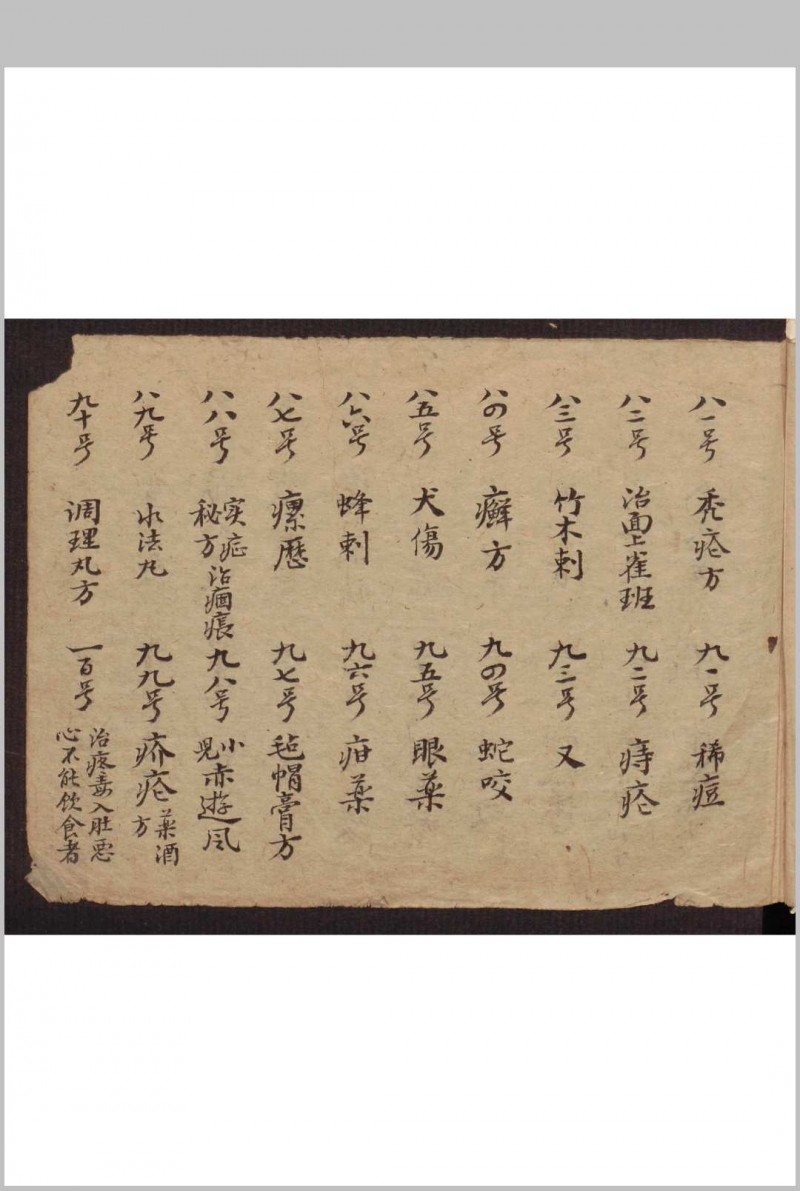 八一号 秃疮方
八二号 治面上雀班
八三号 竹木刺
八四号 癣方
八五号 犬傷
八六号 蜂刺
八七号 瘰歷
八八号 实症秘方 治痼
八九号 水法丸
九十号 调理丸方
九一号 稀痘
九二号 痔疮
九三号 又
九四号 蛇咬
九五号 眼藥
九六号 疳藥
九七号 毡帽膏方
九八号 小児赤遊风
九九号 疥疮藥酒方
一百号 治疼毒入肚恶心不能飲食者